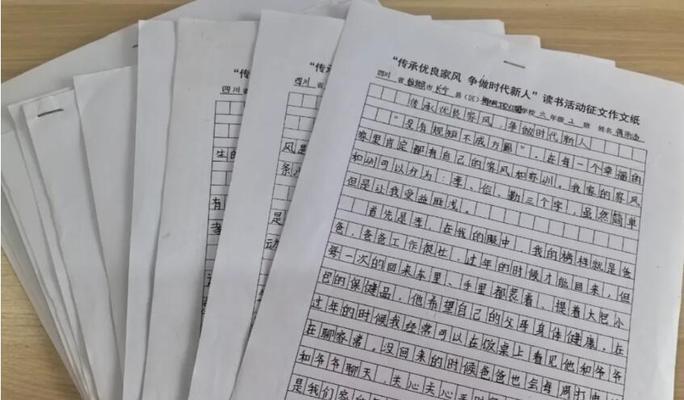 "传承优良家风 争做时代新人"读书活动征文作文纸
四川 省 市 长宁 县(区) 学校 六 年级 2 班 姓名
传承优良家风,争做时代新人
"没有规矩不成方圆",在每一个幸福的
家里肯定都有自己的家风和家训。我家的家风
和训可以分为:孝、俭、勤三个字,虽然简单
但是让我受益匪浅。
首先是孝,在我的眼中,我的榜样就是爸
爸,爸爸工作很忙,过年的时候才能回来,但
每一次的回来车里、手里都装着、提着大包小
包的保健品,他希望自己的父母身体健康。在
过年的时候我经常可以在饭桌上看见他和爷爷
在聊家常,没回来的时候爸爸也会每周打电
和爷爷聊天,关心关心
是我们家
"传承
四川 省
生的
有
"传承
四川 省
风
条
是
动